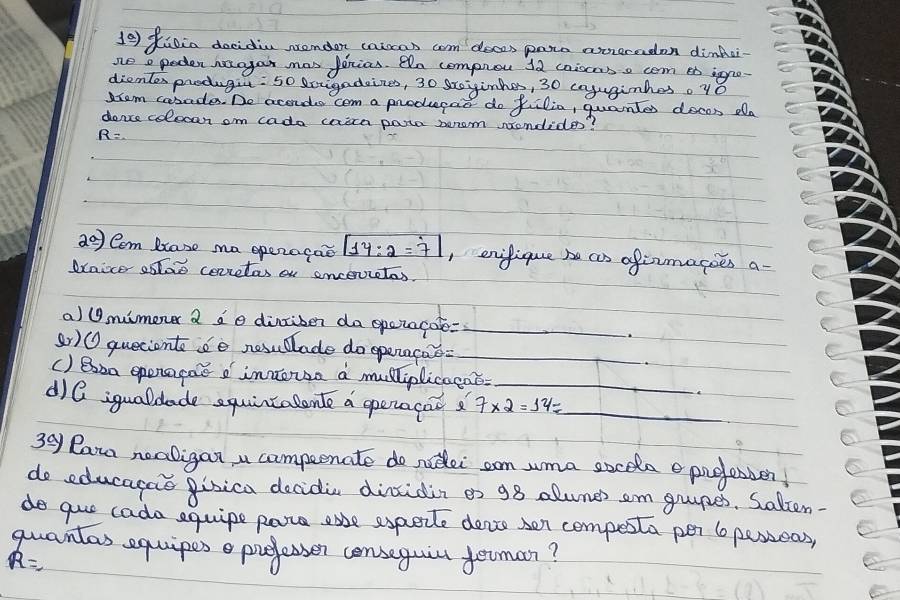 1º) Júlia decidiu vender caixas com doces para arrecadar dinhei-
ro e poder viajar nas férias. Ela comprou 12 caixas e com os ingre-
dientes produziu: 50 brigadeiros, 30 beijinhos, 30 cajuzinhos e 40
bem casados. De acordo com a produção de Júlia, quantos doces ela
deve colocar em cada caixa para serem vendidos?
R=
2º) Com base na operação 14:2=7, verifique se as afirmações a-
baixo estão corretas ou encorretas.
a) O número 2 é o divisor da operação= .
b) O quociente é o resultado da operação= .
c) Essa operação é inversa à multiplicação= .
d) A igualdade equivalente à operação é 7x2=14= .
3º) Para realizar u campeonato de vôlei em uma escola o professor
de educação física decidiu dividir os 98 alunos em grupos. Saben-
do que cada equipe para esse esporte deve ser composta por 6 pessoas,
quantas equipes o professor conseguiu formar?
R=